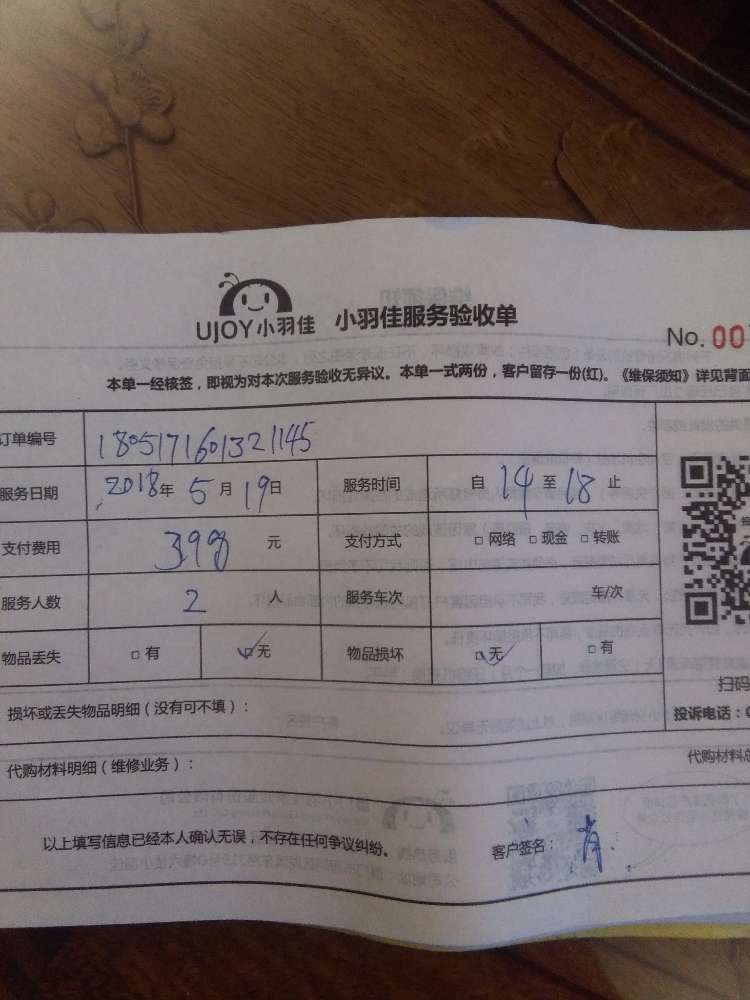 UJOY小羽佳 小羽佳服务验收单
No. 00
本单一经核签，即视为对本次服务验收无异议。本单一式两份，客户留存一份(红)。《维保须知》详见背面
订单编号 1805171601321145
服务日期 2018年 5月 19日 服务时间 自 14 至 18 止
支付费用 398 元 支付方式 □ 网络 □ 现金 □ 转账
服务人数 2 人 服务车次 车/次
物品丢失 □ 有 ☑ 无 物品损坏 ☑ 无 □ 有
扫码
损坏或丢失物品明细（没有可不填）：
投诉电话：0
代购材料明细（维修业务）：
代购材料总
以上填写信息已经本人确认无误，不存在任何争议纠纷。
客户签名：